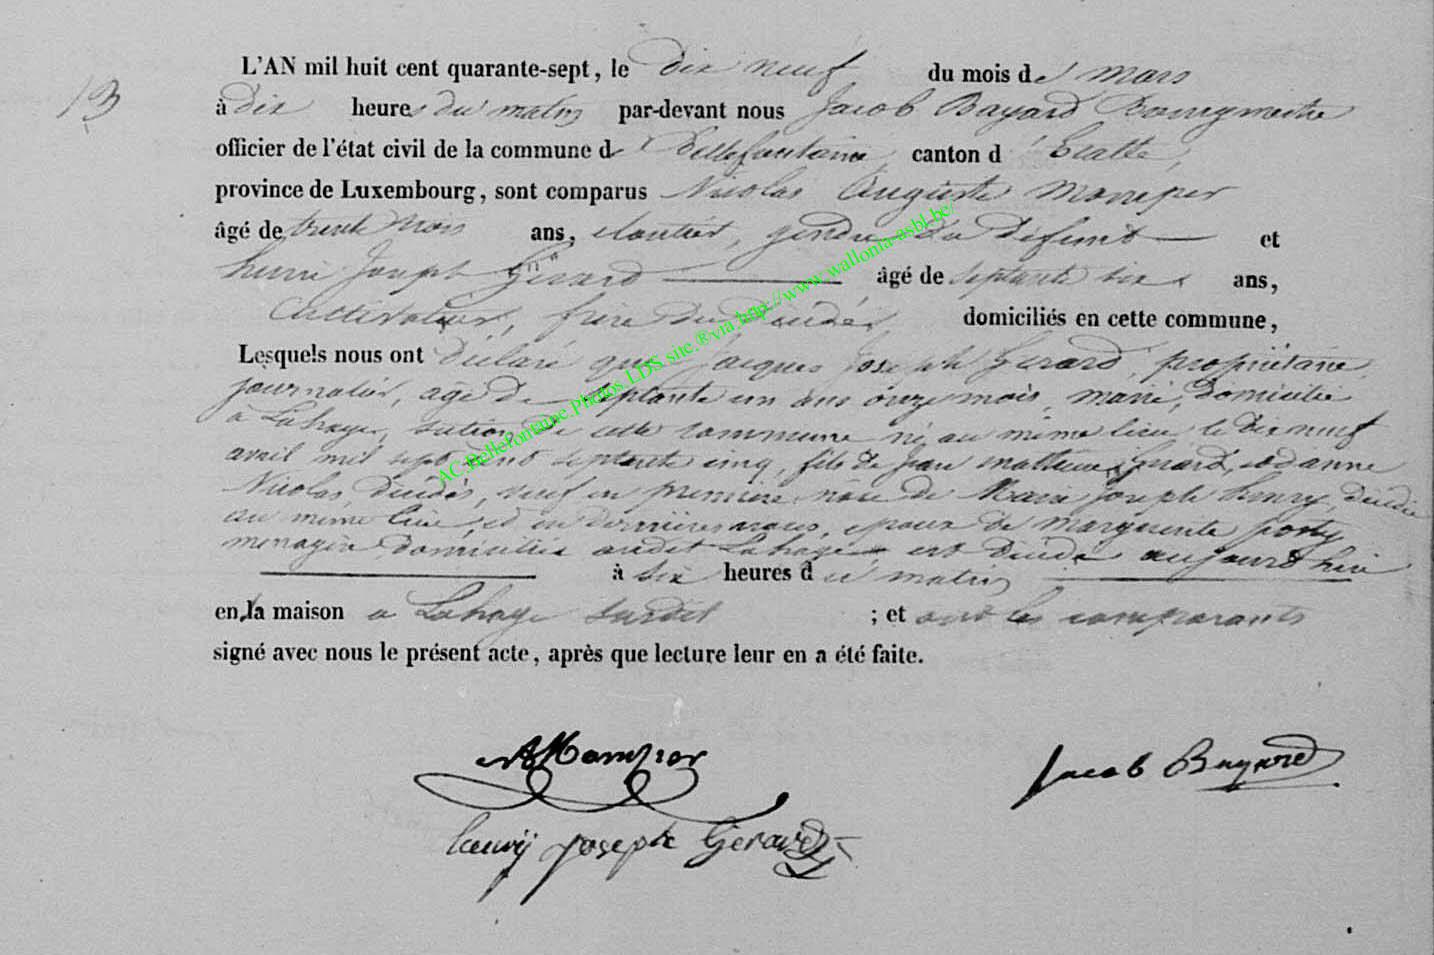 13
L'AN mil huit cent quarante-sept, le dix neuf du mois de mars
à dix heures du matin par-devant nous Jacob Bayard Bourgmestre
officier de l'état civil de la commune de Bellefontaine, canton d' Etalle,
province de Luxembourg, sont comparus Nicolas Auguste
âgé de trente trois ans, cloutier, gendre du défunt et
henri Joseph Gérard âgé de septante six ans,
Cultivateur, frère du décédé, domiciliés en cette commune,
Lesquels nous ont déclaré que Jacques Joseph Gérard, propriétaire
journalier, agé de septante un ans onze mois, marié, domicilié
a Lahage, section de cette commune né au même lieu le dix neuf
avril mil sept cent septante cinq, fils de Jean mathieu gerard, et d'anne
Nicolas, décédés, veuf en première noce de Marie Joseph henry, décédée
au même lieu, et en dernières noces, epoux de marguerite
menagère domiciliée audit Lahage est décédé aujourd'hui
à six heures du matin
en la maison a Lahage susdit ; et ont les comparants
signé avec nous le présent acte, après que lecture leur en a été faite.
Jacob Bayard
henrÿ Joseph Gerard
AC.Bellefontaine.Photos.LDS.site.®via.http://www.wallonia-asbl.be/